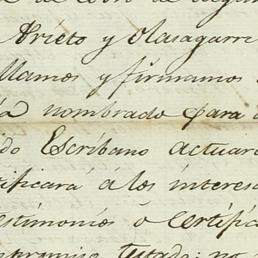 Prieto y Olasagarre
llamos y firmamos
nombrado para
do Escribano actuar
tificará á los interes
estimonios ó certific
Testado: no